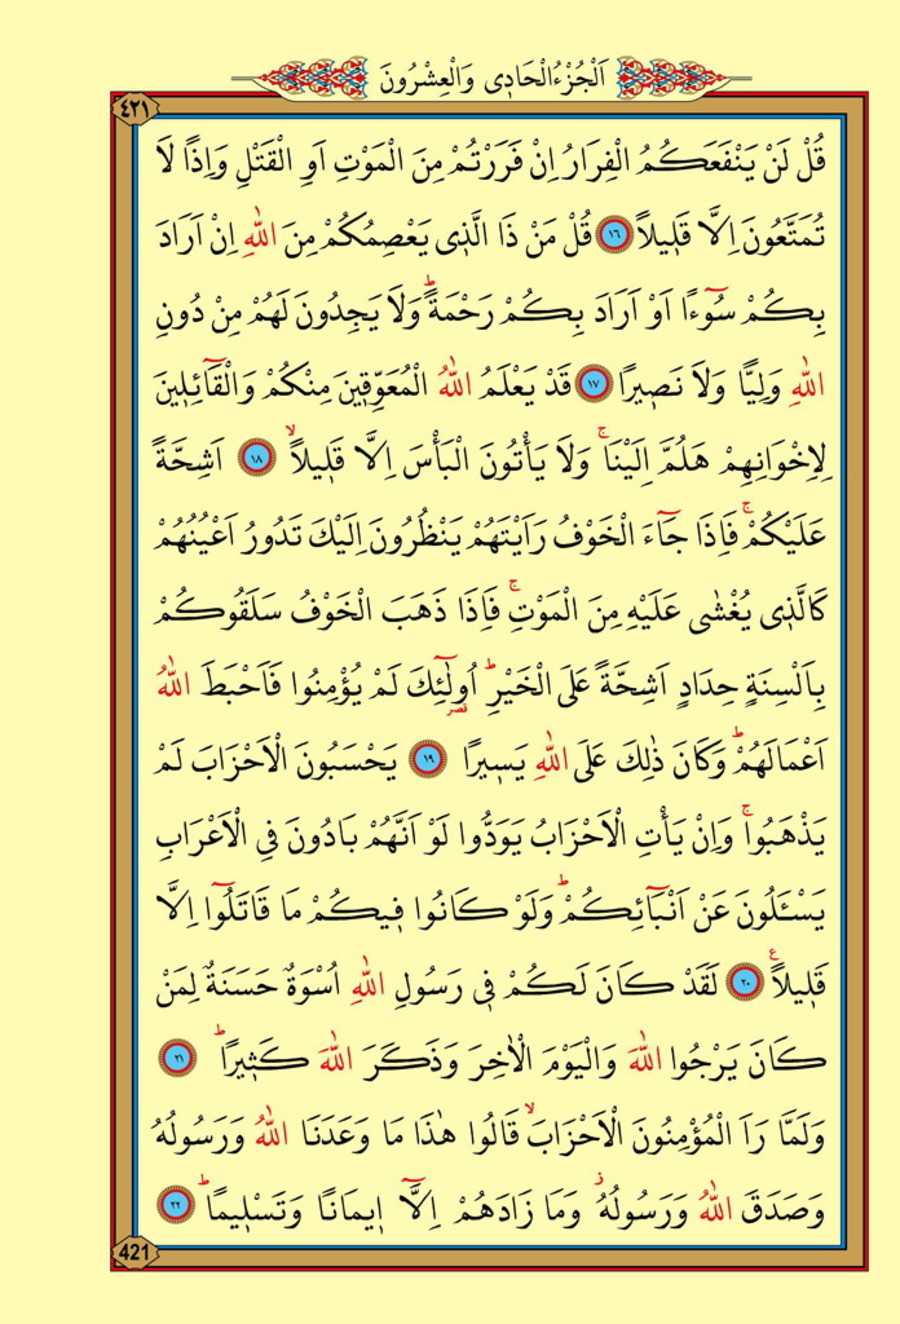 اَلْجُزْءُ الْحَادِى وَالْعِشْرُونَ
٤٢١
قُلْ لَنْ يَنْفَعَكُمُ الْفِرَارُ اِنْ فَرَرْتُمْ مِنَ الْمَوْتِ اَوِ الْقَتْلِ وَاِذًا لَا
تُمَتَّعُونَ اِلَّا قَلٖيلاً ١٦ قُلْ مَنْ ذَا الَّذٖى يَعْصِمُكُمْ مِنَ اللّٰهِ اِنْ اَرَادَ
بِكُمْ سُٓوءًا اَوْ اَرَادَ بِكُمْ رَحْمَةًؕ وَلَا يَجِدُونَ لَهُمْ مِنْ دُونِ
اللّٰهِ وَلِيًّا وَلَا نَصٖيرًا ١٧ قَدْ يَعْلَمُ اللّٰهُ الْمُعَوِّقٖينَ مِنْكُمْ وَالْقَٓائِلٖينَ
لِاِخْوَانِهِمْ هَلُمَّ اِلَيْنَاۚ وَلَا يَأْتُونَ الْبَأْسَ اِلَّا قَلٖيلاًۙ ١٨ اَشِحَّةً
عَلَيْكُمْۚ فَاِذَا جَٓاءَ الْخَوْفُ رَاَيْتَهُمْ يَنْظُرُونَ اِلَيْكَ تَدُورُ اَعْيُنُهُمْ
كَالَّذٖى يُغْشٰى عَلَيْهِ مِنَ الْمَوْتِۚ فَاِذَا ذَهَبَ الْخَوْفُ سَلَقُوكُمْ
بِاَلْسِنَةٍ حِدَادٍ اَشِحَّةً عَلَى الْخَيْرِؕ اُو۬لٰٓئِكَ لَمْ يُؤْمِنُوا فَاَحْبَطَ اللّٰهُ
قصر
اَعْمَالَهُمْؕ وَكَانَ ذٰلِكَ عَلَى اللّٰهِ يَسٖيرًا ١٩ يَحْسَبُونَ الْاَحْزَابَ لَمْ
يَذْهَبُواۚ وَاِنْ يَأْتِ الْاَحْزَابُ يَوَدُّوا لَوْ اَنَّهُمْ بَادُونَ فِى الْاَعْرَابِ
يَسْـَٔلُونَ عَنْ اَنْبَٓائِكُمْؕ وَلَوْ كَانُوا فٖيكُمْ مَا قَاتَلُٓوا اِلَّا
قَلٖيلاًࣖ ٢٠ لَقَدْ كَانَ لَكُمْ فٖى رَسُولِ اللّٰهِ اُسْوَةٌ حَسَنَةٌ لِمَنْ
كَانَ يَرْجُوا اللّٰهَ وَالْيَوْمَ الْاٰخِرَ وَذَكَرَ اللّٰهَ كَثٖيرًاؕ ٢١
وَلَمَّا رَاَ الْمُؤْمِنُونَ الْاَحْزَابَۙ قَالُوا هٰذَا مَا وَعَدَنَا اللّٰهُ وَرَسُولُهُ
وَصَدَقَ اللّٰهُ وَرَسُولُهُؗ وَمَا زَادَهُمْ اِلَّٓا اٖيمَانًا وَتَسْلٖيمًاؕ ٢٢
421